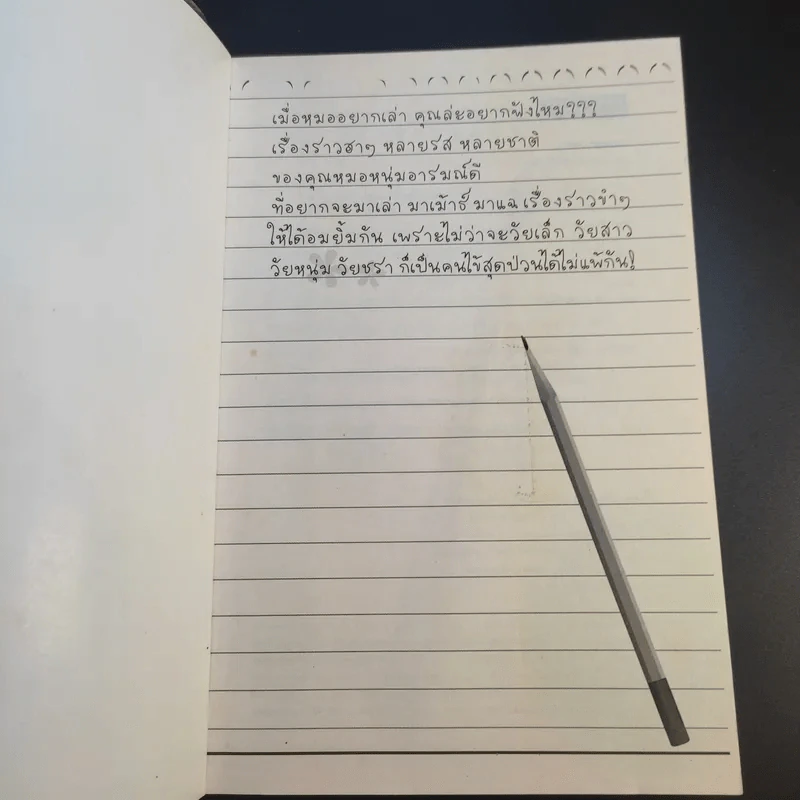 เมื่อหมออยากเล่า คุณล่ะอยากฟังไหม???
เรื่องราวฮาๆ หลายรส หลายชาติ
ของคุณหมอหนุ่มอารมณ์ดี
ที่อยากจะมาเล่า มาเม้าธ์ มาแฉ เรื่องราวขำๆ
ให้ได้อมยิ้มกัน เพราะไม่ว่าจะวัยเล็ก วัยสาว
วัยหนุ่ม วัยชรา ก็เป็นคนไข้สุดป่วนได้ไม่แพ้กัน!